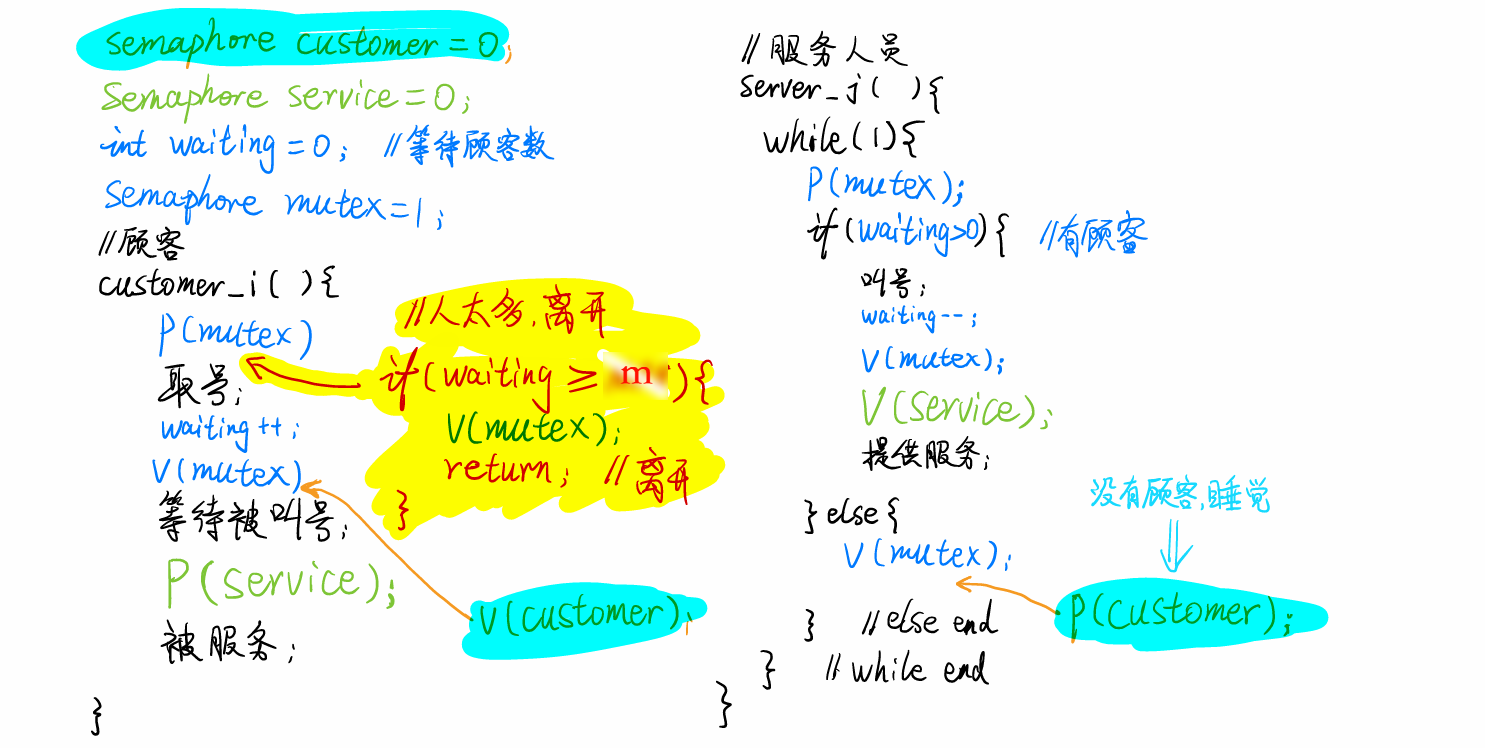 semaphore customer = 0;
Semaphore service = 0;
int waiting = 0; //等待顾客数
Semaphore mutex=1;
//顾客
customer_i( ){
P(mutex)
取号;
waiting ++;
V(mutex)
等待被叫号;
P(service);
被服务;
}
//人太多,离开
if(waiting ≥ m){
V(mutex);
return; //离开
}
V(customer);
//服务人员
Server_j( ){
while(1){
P(mutex);
if(waiting>0){ //有顾客
叫号;
waiting--;
V(mutex);
V(service);
提供服务;
}else{
V(mutex);
没有顾客,睡觉
P(customer);
} //else end
} //while end
}